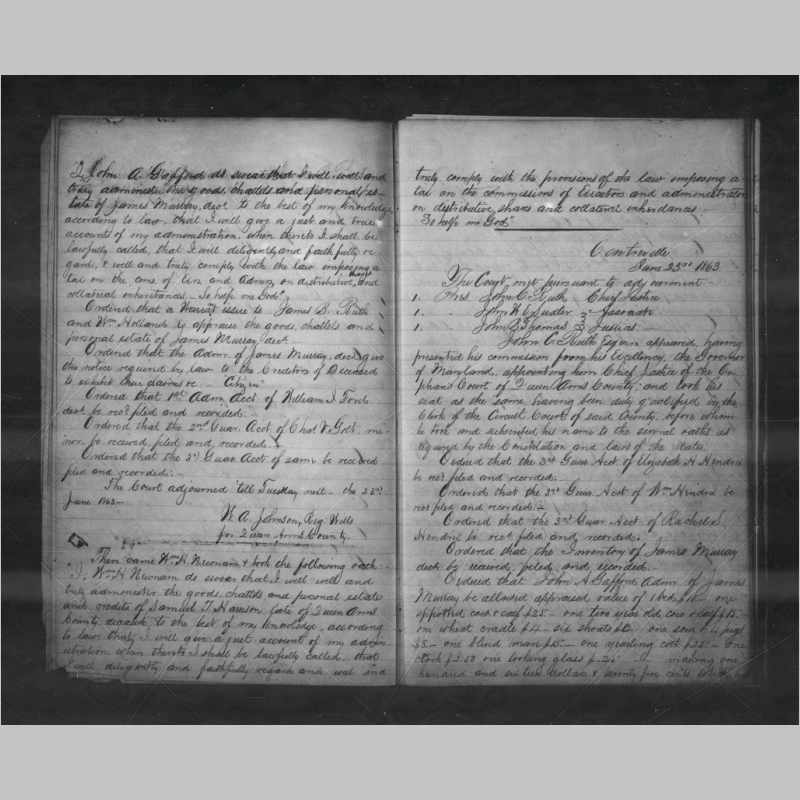 "I, John A Gafford do swear that I will well and
truly administer the goods, chattels and personal es-
tate of James Murray, decd to the best of my knowledge
according to law, that I will give a just and true
account of my administration, when thereto I shall be
lawfully called, that I will diligently and faithfully re
gard, & well and truly comply with the law imposing a
tax on the coms of Exrs and Admrs, on distributive shares and
collateral inheritances — So help me God"
Ordered that a warrant issue to James B. Ruth
and Wm Holland to appraise the goods, chattels and
personal estate of James Murray, decd
Ordered that the Admr of James Murray, decd give
the notice required by law to the Creditors of Deceased
to exhibit their claims &c —
Ordered that 1st Adm Acct of William J. Fords
decd be recd filed and recorded.
Ordered that the 2nd Guar Acct of Chas W. Gott mi-
nor, be received filed and recorded.
Ordered that the 3d Guar Acct of same be received
filed and recorded. —
The Court adjourned till Tuesday next — the 23rd
June 1863 —
W. A. Johnson, Reg. Wills
for Queen Anns County.
Then came Wm H. Newnam & took the following oath
"I, Wm H Newnam do swear that I will well and
truly administer the goods, chattels and personal estate
and credits of Samuel T. Harrison late of Queen Anns
County, deceased to the best of my knowledge, according
to law, that I will give a just account of my admin
istration when thereto I shall be lawfully called, that
I will diligently and faithfully regard and well and
truly comply with the provisions of the law imposing a
tax on the commissions of Executors and administrators
on distributive shares and collateral inheritances
So help me God"
Centreville
June 23rd 1863
The Court met pursuant to adjournment
1. Hon. John C. Ruth Chief Justice
1. John W. E. Sudler } Associate
1. John B. Thomas } Justices
John C. Ruth Esquire appeared, having
presented his commission from his Excellency, the Governor
of Maryland, appointing him Chief Justice of the Or
phans Court of Queen Anns County; and took his
seat as the same having been duly qualified by the
Clerk of the Circuit Court of said County, before whom
he took and subscribed his name to the several oaths as
required by the Constitution and laws of the State.
Ordered that the 3rd Guar Acct of Elizabeth H Hendrix
be recd filed and recorded.
Ordered that the 3rd Guar Acct of Wm Hendrix be
recd filed and recorded. —
Ordered that the 3rd Guar Acct of Rachel S.
Hendrix be recd filed and recorded.
Ordered that the Inventory of James Murray
decd be received, filed, and recorded.
Ordered that John A. Gafford Admr of James
Murray be allowed appraised value of
spotted cow & calf $25 — one two year old cow & calf $15 —
one wheat cradle $4 — six shoats — one sow & pigs
$5 — one blind mare $5 — one yearling colt $25 — One
clock $2.50 one looking glass making one
hundred and sixteen dollars & seventy five cents